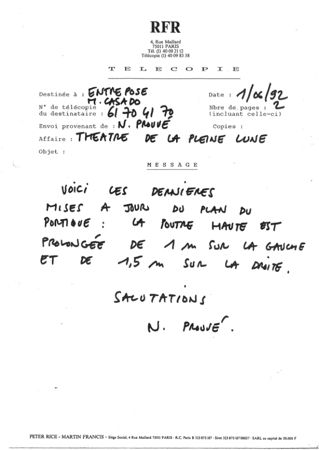 RFR
4, Rue Maillard
75011 PARIS
Tél. (1) 40 09 21 12
Télécopie (1) 40 09 83 58
TELECOPIE
Destinée à : ENTREPOSE
M. CASADO
Date : 1/06/92
N° de télécopie
du destinataire : 61 70 41 70
Nbre de pages : 2
(incluant celle-ci)
Envoi provenant de : N. PROUVÉ
Copies :
Affaire : THEATRE DE LA PLEINE LUNE
Objet :
MESSAGE
VOICI LES DERNIERES
MISES A JOUR DU PLAN DU
PORTIQUE : LA POUTRE HAUTE EST
PROLONGÉE DE 1 m SUR LA GAUCHE
ET DE 1,5 m SUR LA DROITE.
SALUTATIONS
N. PROUVÉ.
PETER RICE - MARTIN FRANCIS - Siège Social, 4 Rue Maillard 75011 PARIS - R.C. Paris B